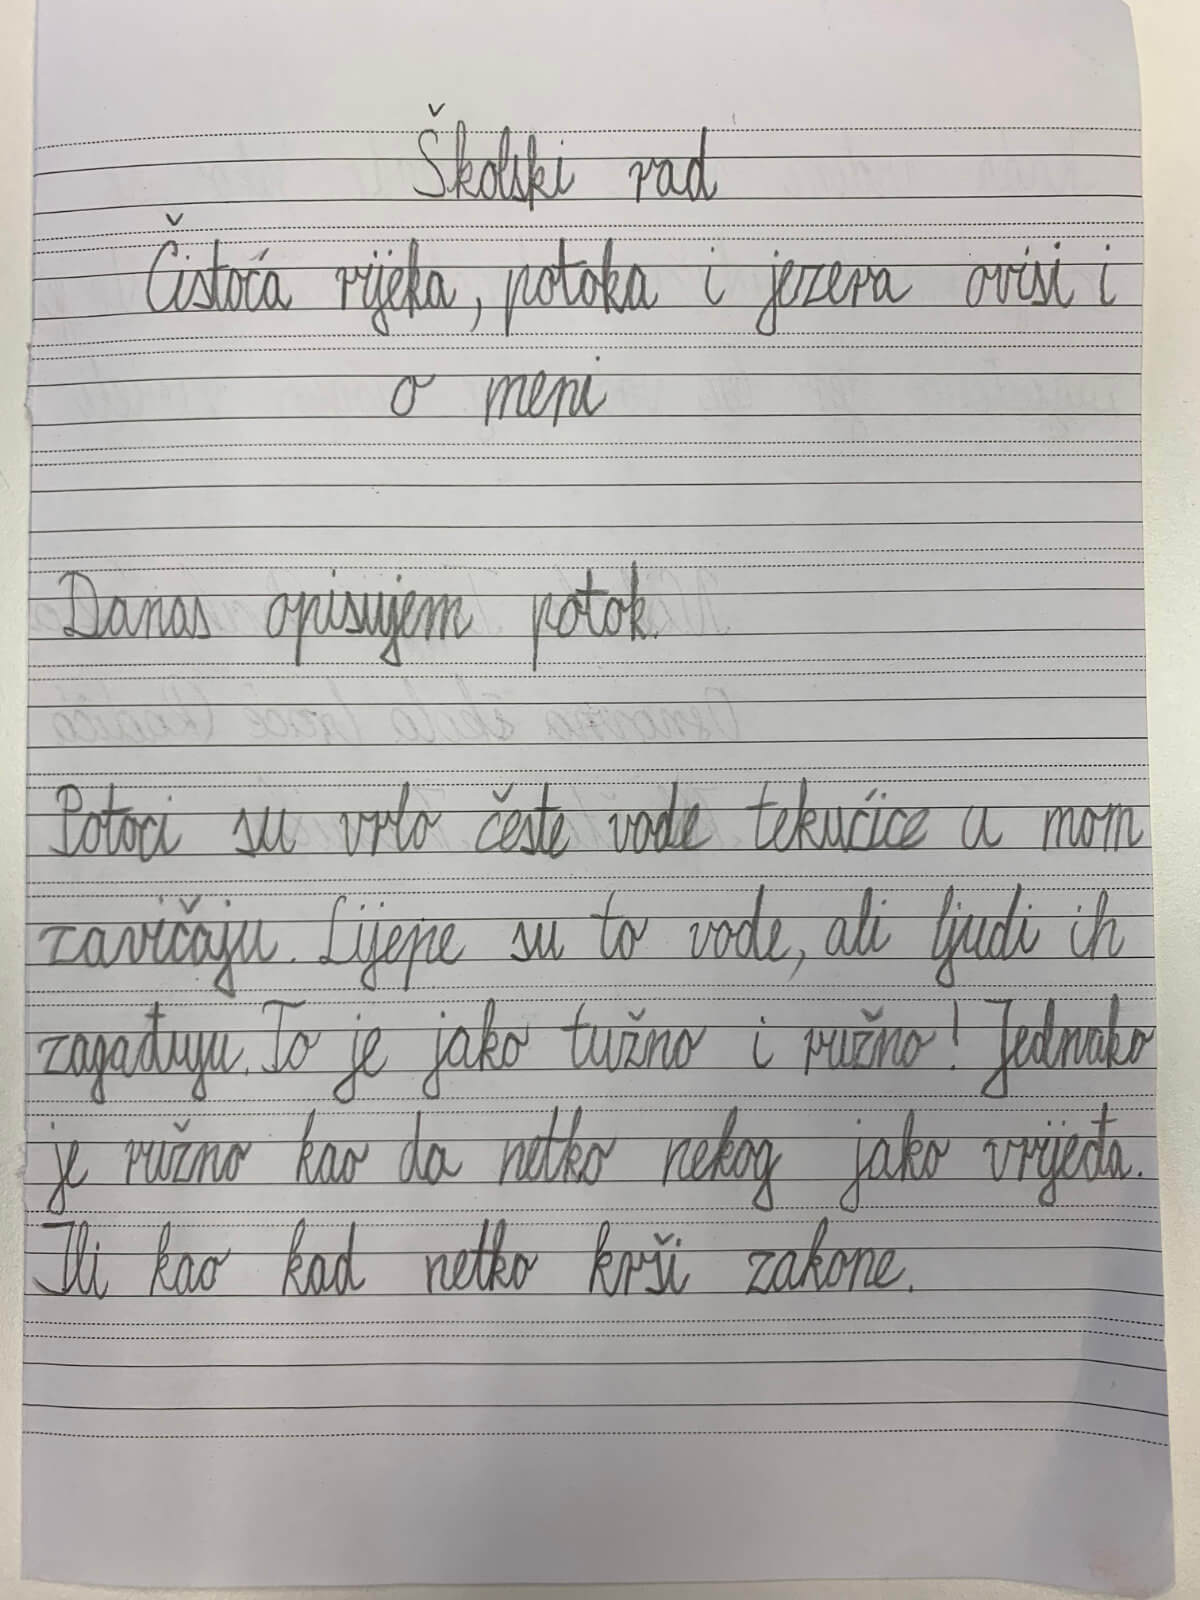 Školski rad
Čistoća rijeka, potoka i jezera ovisi i
o meni
Danas opisujem potok.
Potoci su vrlo česte vode tekućice u mom
zavičaju. Lijepe su to vode, ali ljudi ih
zagađuju. To je jako tužno i ružno! Jednako
je ružno kao da netko nekog jako vrijeđa.
Ili kao kad netko krši zakone.